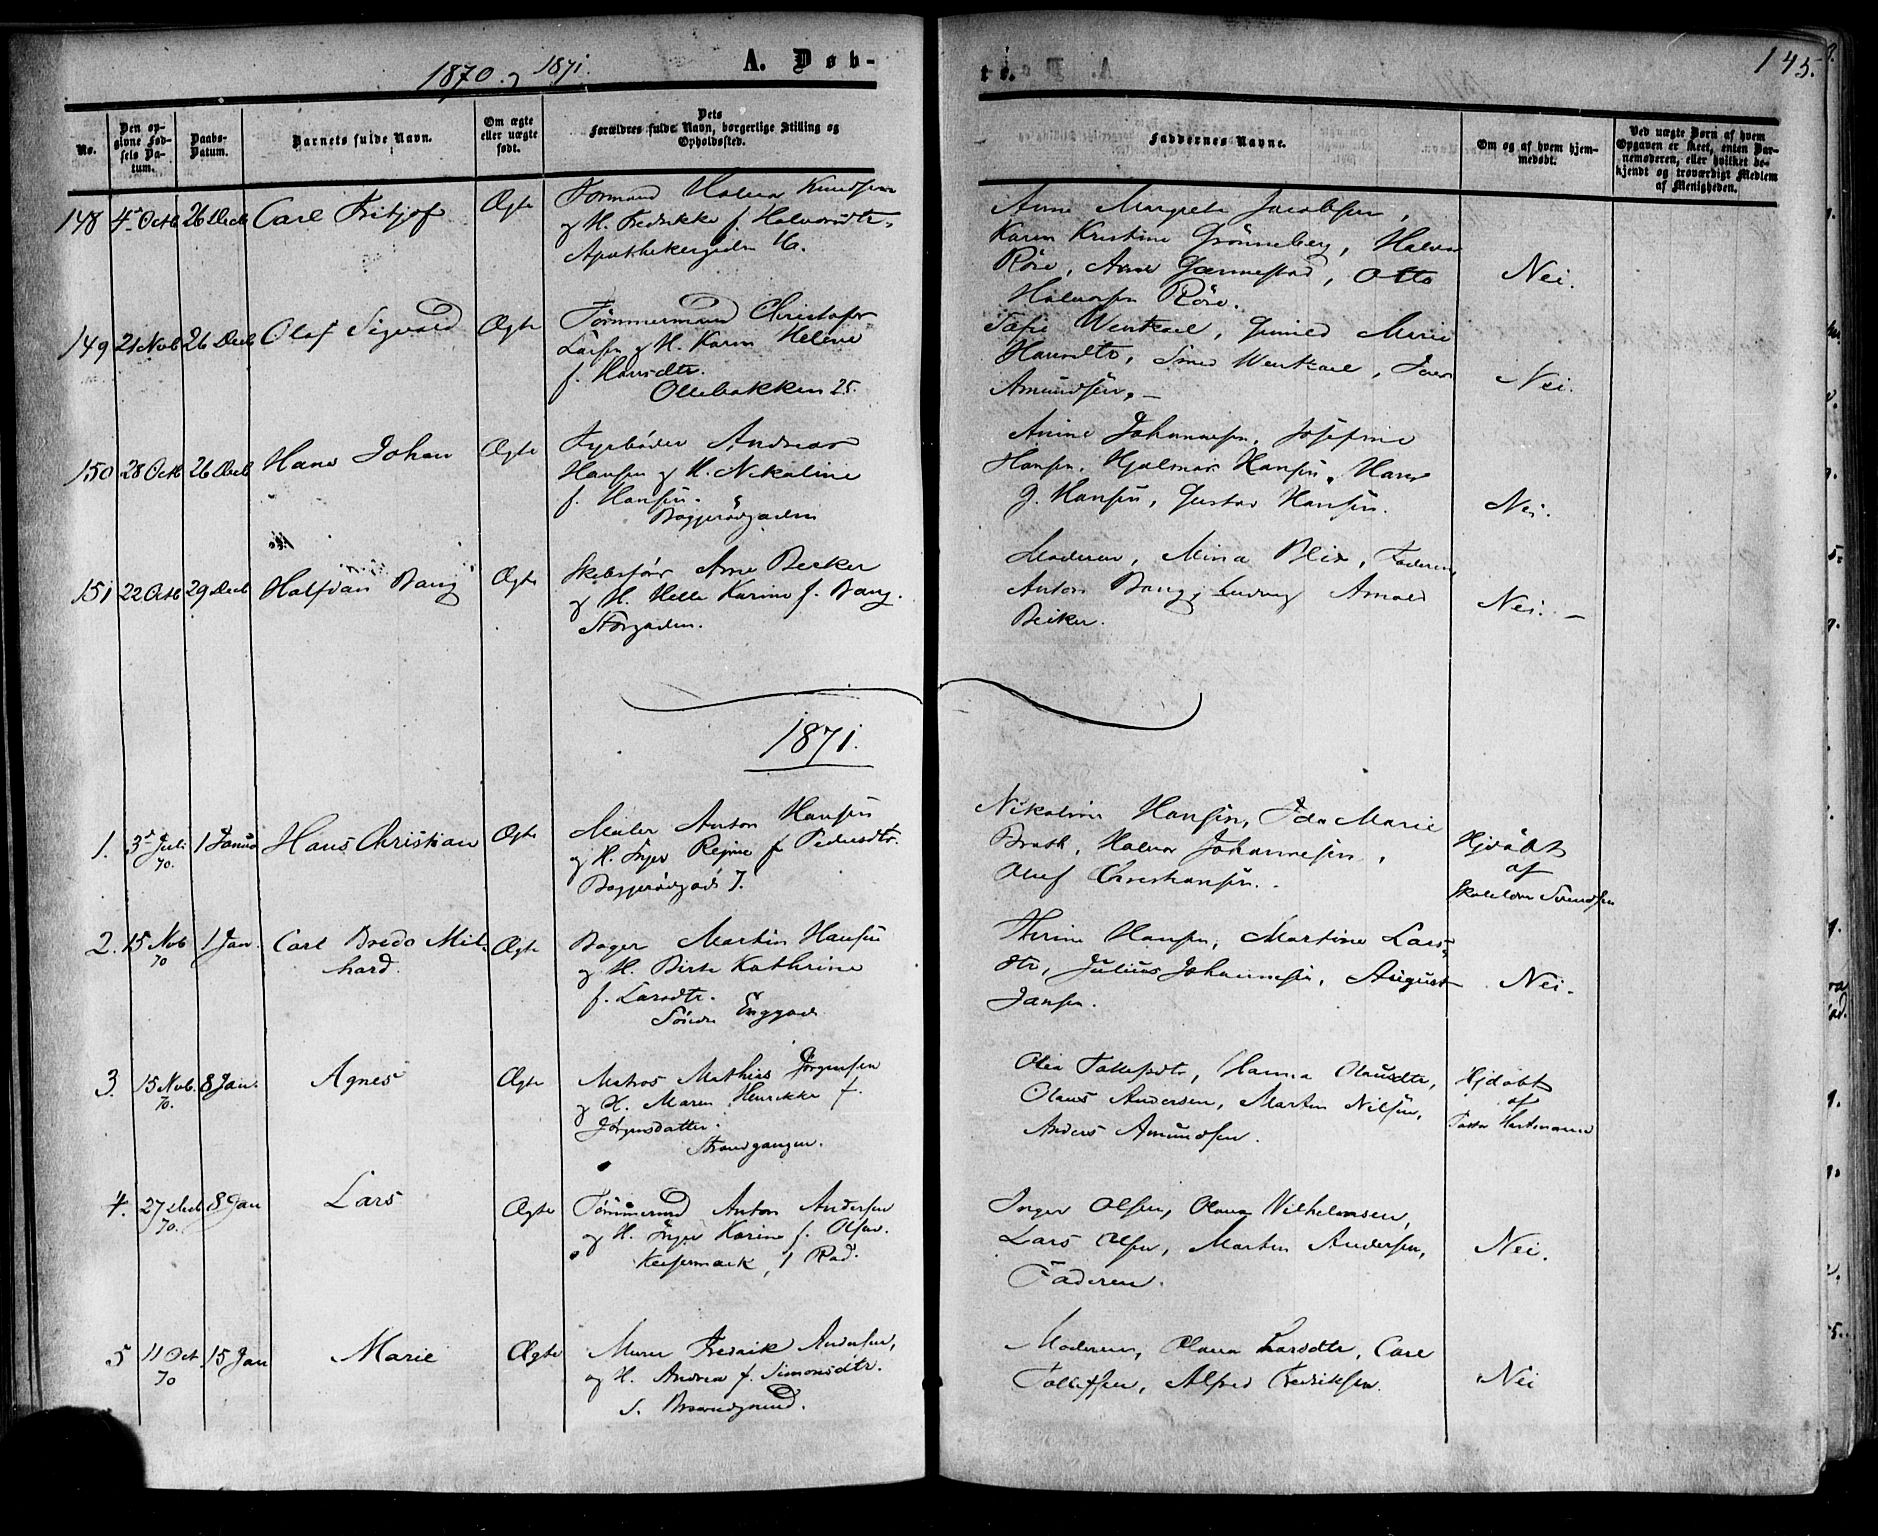 1870 og 1871.
A. Døb-
te.
145.
No.
Den opgivne Fødsels Datum.
Daabs-Datum.
Barnets fulde Navn.
Om ægte eller uægte født.
Dets Forældres fulde Navn, borgerlige Stilling og Opholdssted.
Faddernes Navne.
Om og af hvem hjemmedøbt.
Ved uægte Børn af hvem Opgaven er skeet, enten Barnemoderen, eller hvilket bekjendt og troværdigt Medlem af Menigheden.
148 4 Octb 26 Decb Carl Fritjof Ægte Formand Halvor Knudsen
og H. Fredrikke f. Halvorsdtr.
Apothekergaden 16.
Anne Margrete Jacobsen,
Karen Kristine Grönneberg, Halvor
Röre, Anne Gannestad, Otto
Halvorsen Röre.
Nei.
149 21 Novb 26 Decb Olaf Sigvald Ægte Tømmermand Christofer
Larsen og H. Karen Helene
f. Hansdtr.
Ollebakken 25.
Sofie Wentzel, Gunild Marie
Hansdtr, Smed Wentzel, Iver
Amundsen. —
Nei.
150 28 Octb 26 Decb Hans Johan Ægte Fyrböder Andreas
Hansen og H. Nikoline
f. Hansen.
Baggerödgaden
Anine Johannesen, Josefine
Hansen, Hjalmar Hansen, Hans
G. Hansen, Gustav Hansen.
Nei.
151 22 Octb 29 Decb Halfdan Bang Ægte Skibsförer Arne Becker
og H. Helle Karine f. Bang.
Storgaden.
Moderen, Mina Blix, Faderen,
Anton Bang, Ludvig Arnold
Becker.
Nei. —
1871.
1. 3 Juli 70. 1 Januar Hans Christian Ægte Maler Anton Hansen
og H. Inger Regine f Pedersdtr.
Baggerödgade 7.
Nikoline Hansen, Ida Marie
Brath, Halvor Johannesen,
Oluf Christiansen.
Hjdöbt
af
Skolelærer Svendsen
2. 15 Nvb 70 1 Jan. Carl Bredo Mil-
hard.
Ægte Bager Martin Hansen
og H. Birte Kathrine
f. Larsdtr.
Söndre Enggade
Therine Hansen, Martine Lars-
dtr, Julius Johannesen, August
Jansen.
Nei.
3. 15 Nvb. 70. 8 Jan. Agnes Ægte Matros Mathias Jörgensen
og H. Maren Henrikke f.
Jörgensdatter.
Strandgangen.
Olea Tollefsdtr, Hanna Olausdtr,
Olaus Andersen, Martin Nilsen,
Anders Amundsen.
Hjdöbt
af
Pastor Hartmann
4. 27 Decb 70. 8 Jan Lars Ægte Tømmermd Anton Andersen
og H. Inger Karine f. Olsen.
Keisermark, 1 Rad.
Inger Olsen, Olava Vilhelmsen,
Lars Olsen, Martin Andersen,
Faderen.
Nei.
5 11 Oct. 70 15 Jan Marie Ægte Murer Fredrik Andersen,
og H. Andrea f. Simonsdtr.
S. Brandgrund.
Moderen, Olava Larsdtr, Carl
Tollefsen, Alfred Fredriksen.
Nei